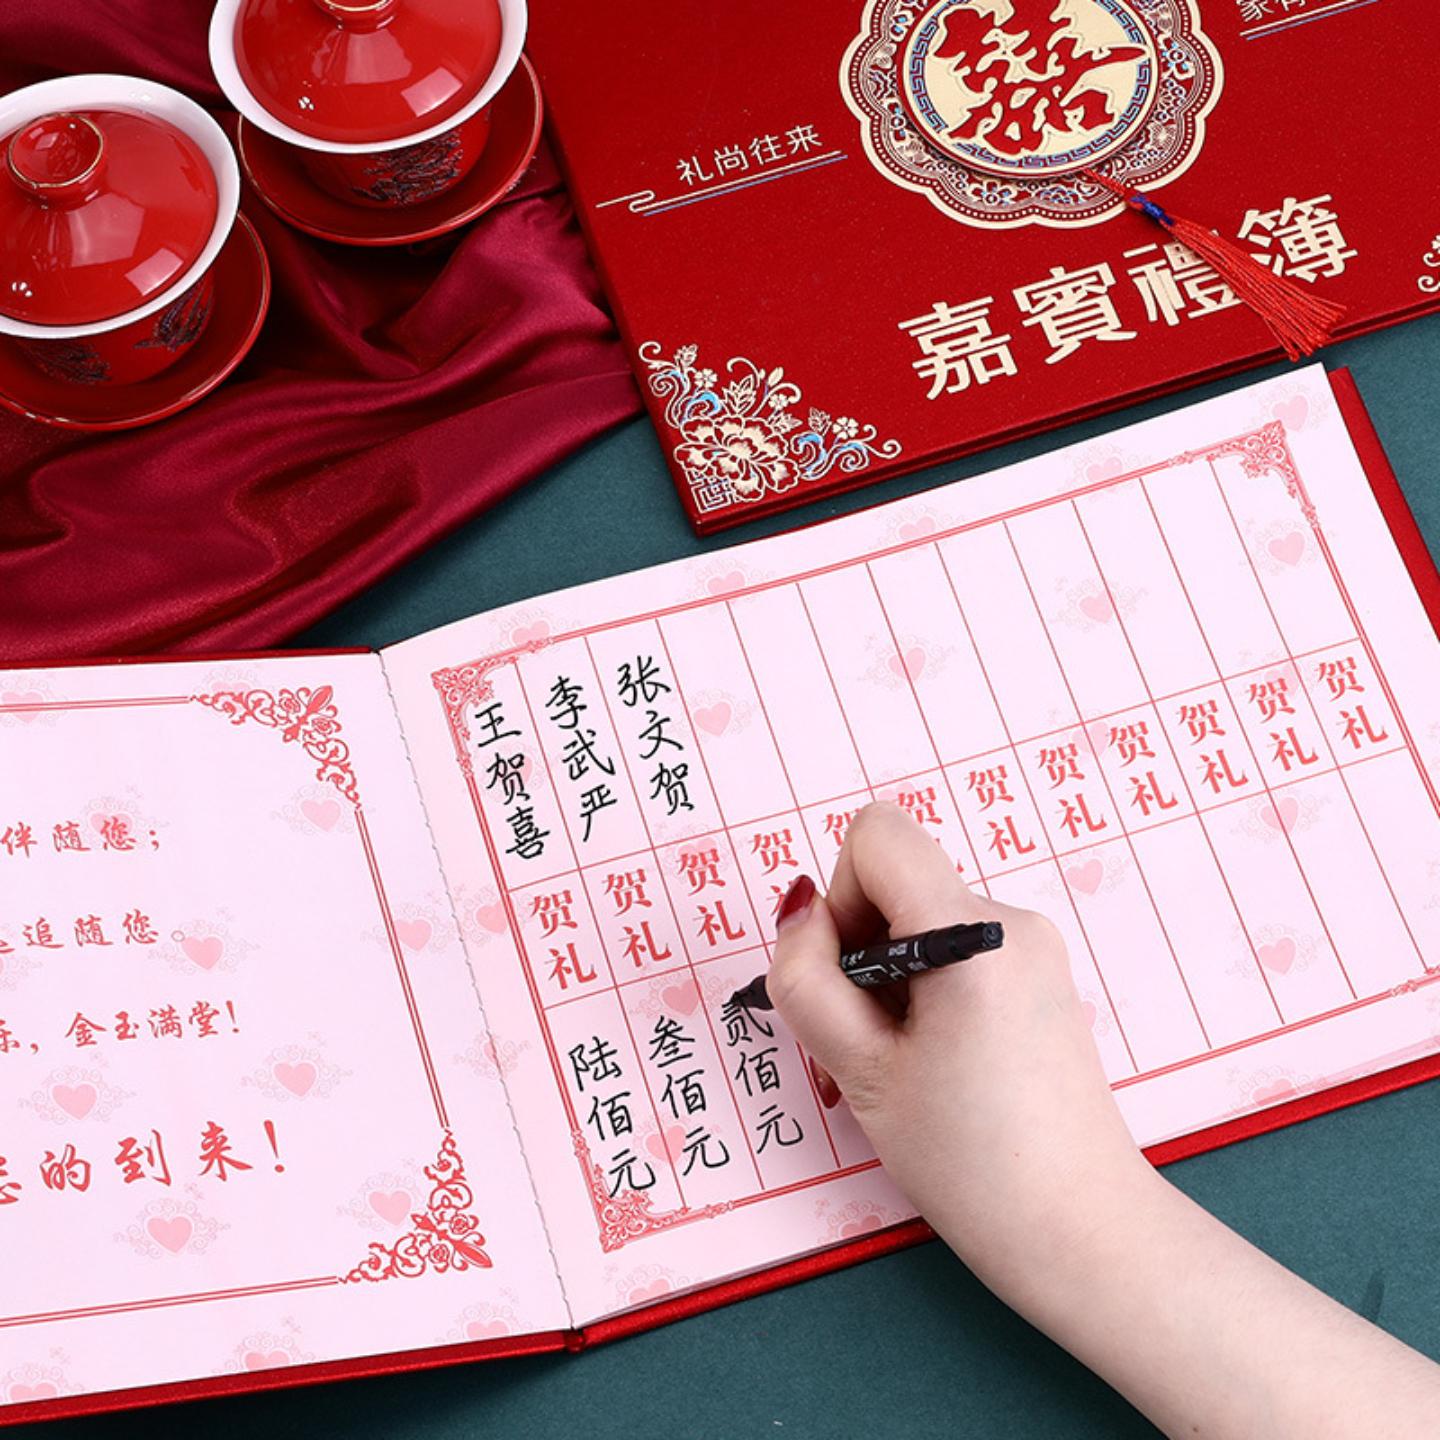 礼尚往来
嘉賓禮簿
伴随您；
追随您。
金玉满堂！
的到来！
王贺喜
李武严
张文贺
贺礼
贺礼
贺礼
贺
贺
贺
贺礼
贺礼
贺礼
贺礼
贺礼
贺礼
陆佰元
叁佰元
贰佰元